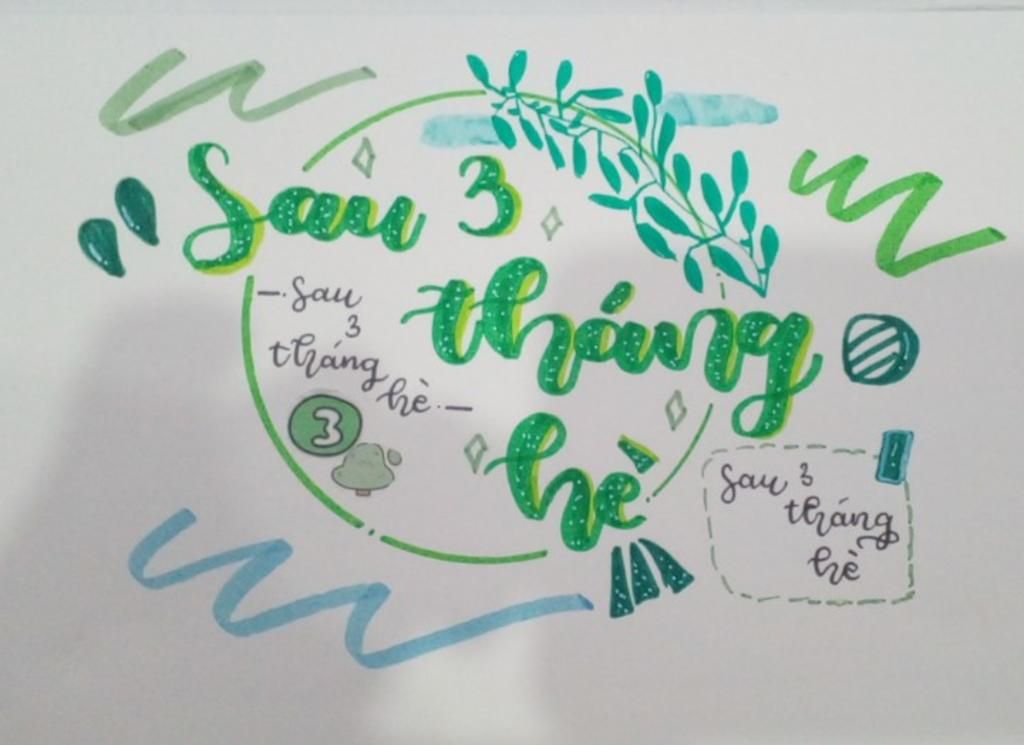 Sau 3
tháng
hè
- Sau
3
tháng
hè -
3
Sau 3
tháng
hè